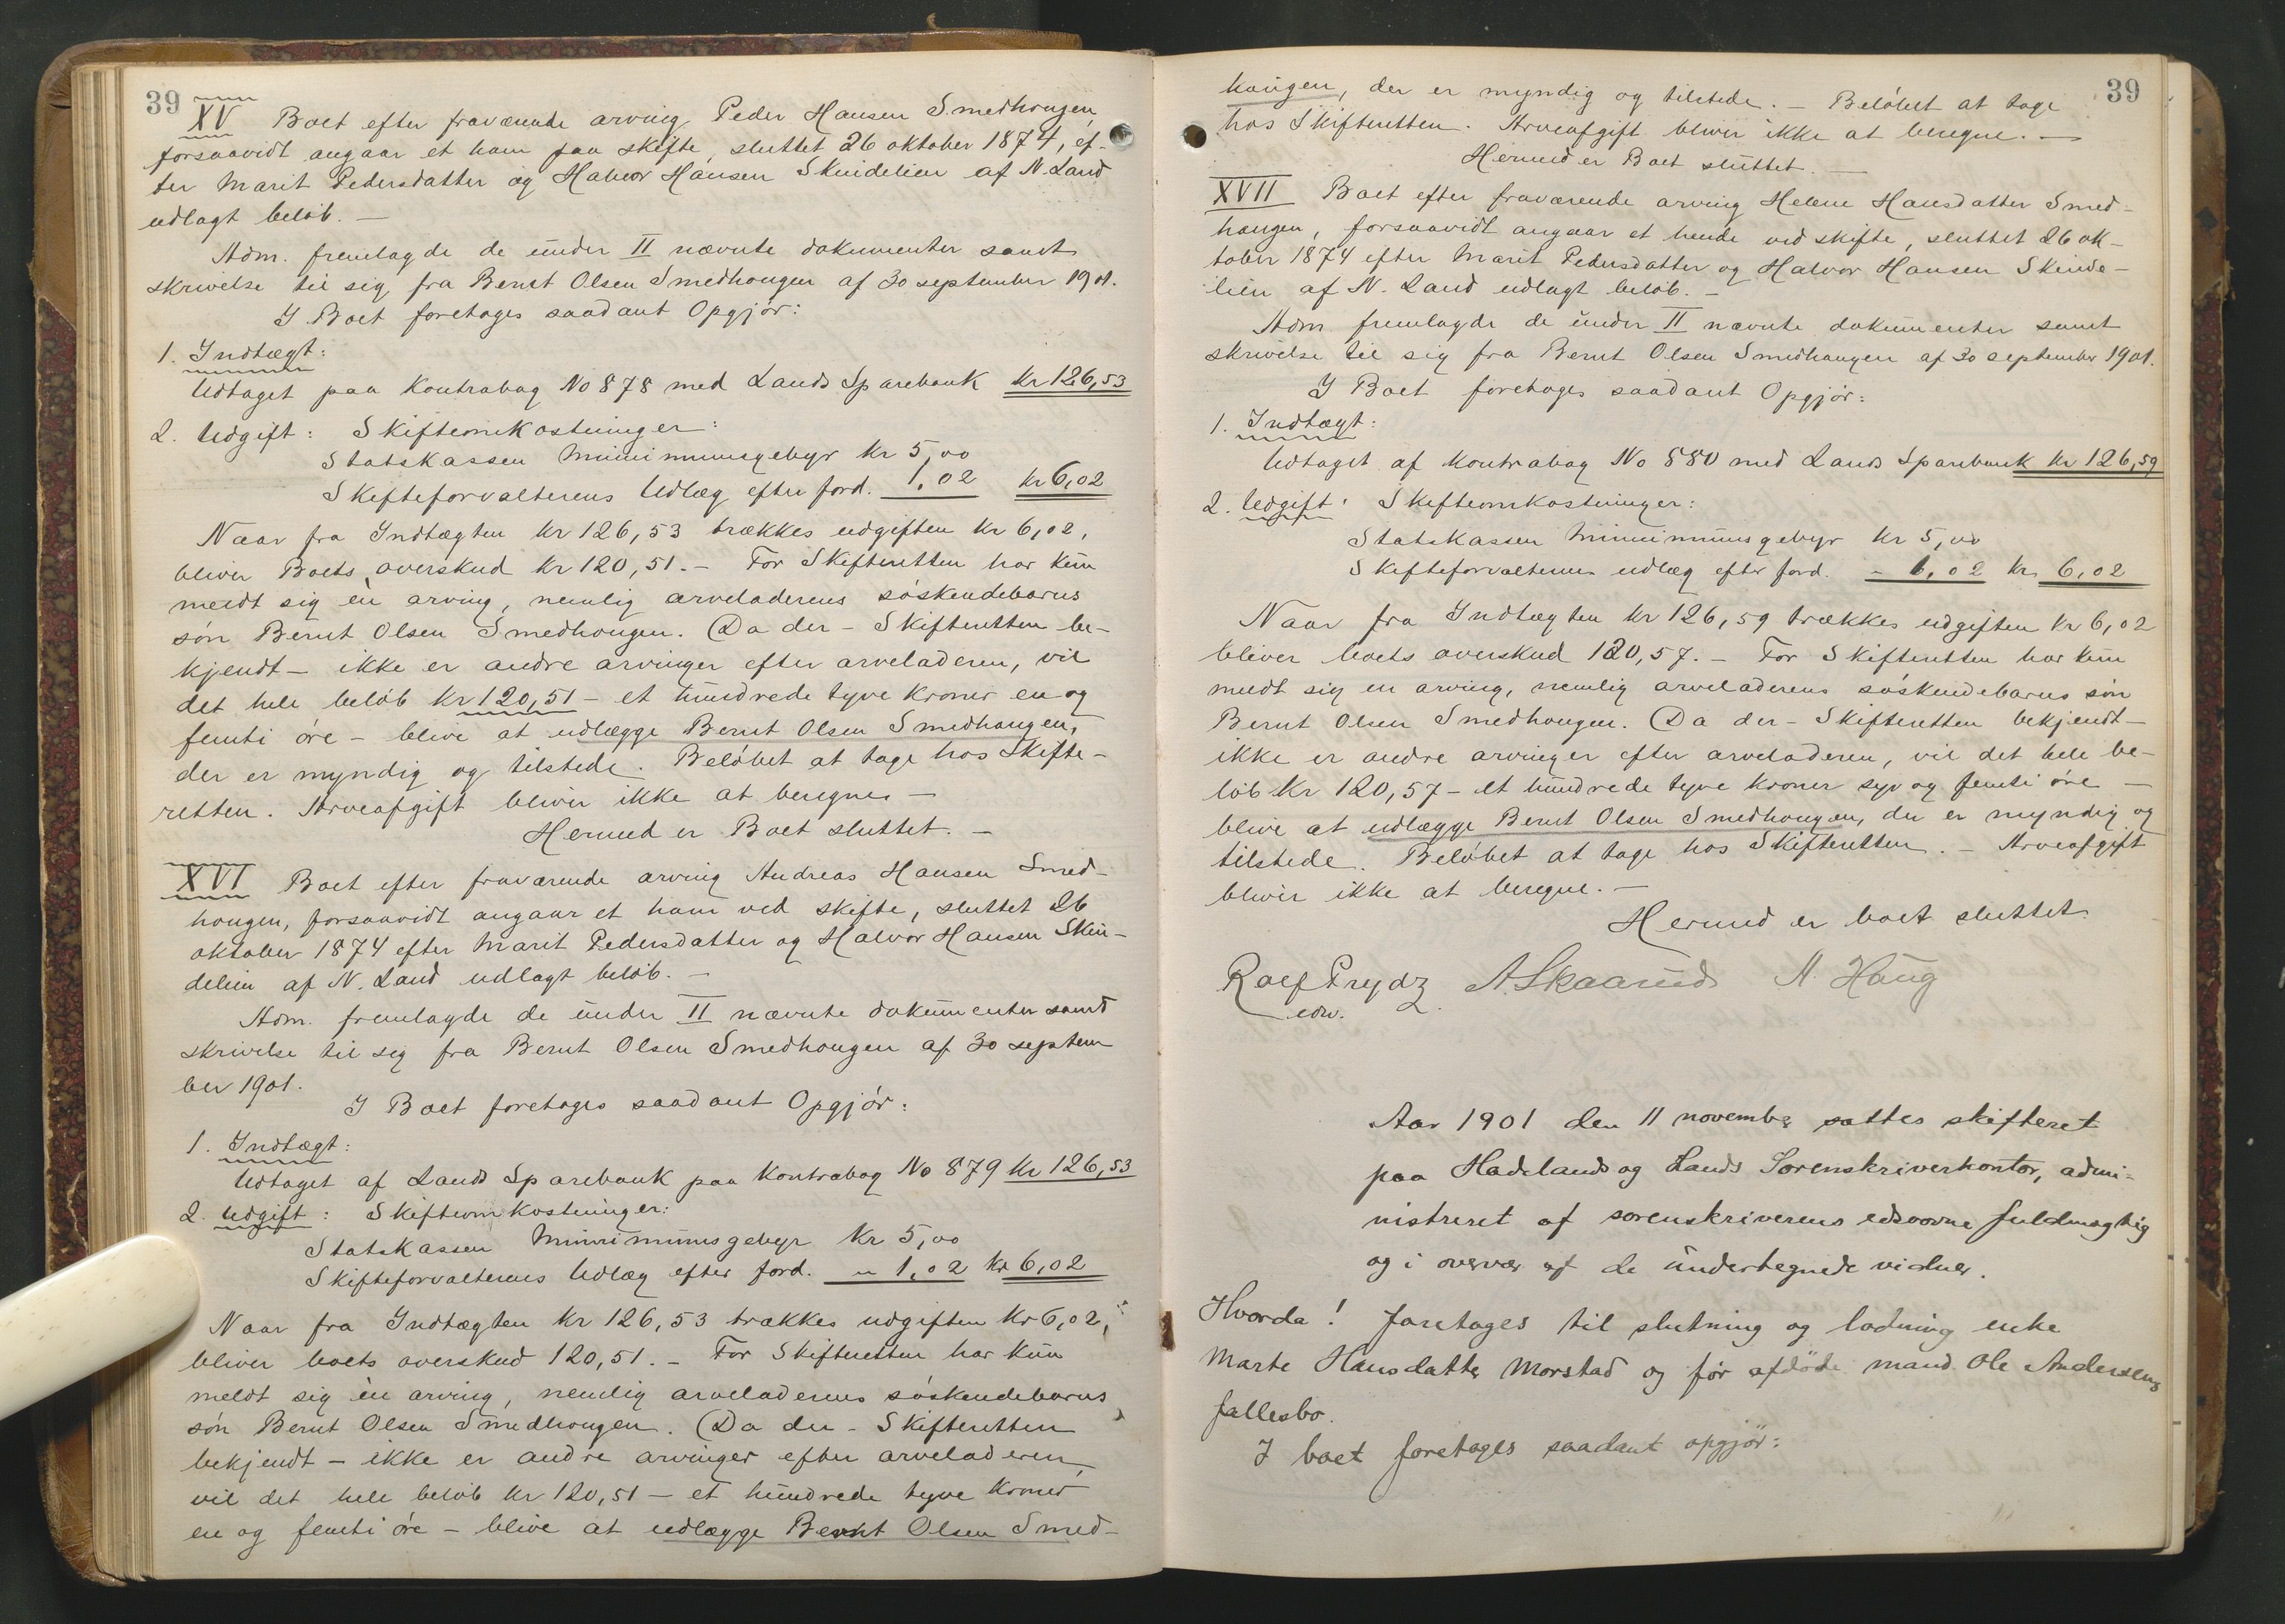 39
XV Boet efter fraværende arving Peder Hansen Smedhougen,
forsaavidt angaar et ham paa skifte, sluttet 26 oktober 1874, ef-
ter Marit Pedersdatter og Halvor Hansen Skindelien af N. Land
udlagt beløb. —
Adm. fremlagde de under II nævnte dokumenter samt
skrivelse til sig fra Bernt Olsen Smedhougen af 30 september 1901.
I Boet foretoges saadant Opgjør:
1. Indtægt:
Udtaget paa Kontrabog No 878 med Lands Sparebank kr 126,53
2. Udgift: Skifteomkostninger:
Statskassen Minimumsgebyr kr 5,00
Skifteforvalterens Udlæg efter ford. 1,02 kr 6,02
Naar fra Indtægten kr 126,53 trækkes udgiften kr 6,02,
bliver Boets overskud kr 120,51. — For Skifteretten har kun
meldt sig en arving, nemlig arveladerens søskendebarns
søn Bernt Olsen Smedhougen. Da der — Skifteretten be-
kjendt — ikke er andre arvinger efter arveladeren, vil
det hele beløb kr 120,51 — et hundrede tyve kroner en og
femti øre — blive at udlægge Bernt Olsen Smedhougen,
der er myndig og tilstede. Beløbet at tage hos Skifte-
retten. Arveafgift bliver ikke at beregne. —
Hermed er Boet sluttet. —
XVI Boet efter fraværende arving Andreas Hansen Smed-
hougen, forsaavidt angaar et ham ved skifte, sluttet 26
oktober 1874 efter Marit Pedersdatter og Halvor Hansen Skin-
delien af N. Land udlagt beløb. —
Adm. fremlagde de under II nævnte dokumenter samt
skrivelse til sig fra Bernt Olsen Smedhougen af 30 septem
ber 1901.
I Boet foretoges saadant Opgjør:
1. Indtægt:
Udtaget af Lands Sparebank paa Kontrabog No 879 kr 126,53
2. Udgift: Skifteomkostninger:
Statskassen Minimumsgebyr kr 5,00
Skifteforvalterens Udlæg efter ford. " 1,02 kr 6,02
Naar fra Indtægten kr 126,53 trækkes udgiften kr 6,02,
bliver boets overskud 120,51. — For Skifteretten har kun
meldt sig én arving, nemlig arveladerens søskendebarns
søn Bernt Olsen Smedhougen. Da der — Skifteretten
bekjendt — ikke er andre arvinger efter arveladeren,
vil det hele beløb kr 120,51 — et hundrede tyve kroner
en og femti øre — blive at udlægge Bernt Olsen Smed-
39
hougen, der er myndig og tilstede. — Beløbet at tage
hos Skifteretten. Arveafgift bliver ikke at beregne. —
Hermed er Boet sluttet. —
XVII Boet efter fraværende arving Helene Hansdatter Smed-
hougen, forsaavidt angaar et hende ved skifte, sluttet 26 ok-
tober 1874 efter Marit Pedersdatter og Halvor Hansen Skinde-
lien af N. Land udlagt beløb. —
Adm. fremlagde de under II nævnte dokumenter samt
skrivelse til sig fra Bernt Olsen Smedhaugen af 30 september 1901.
I Boet foretoges saadant Opgjør:
1. Indtægt:
Udtaget af Kontrabog No 880 med Lands Sparebank kr 126,59
2. Udgift: Skifteomkostninger:
Statskassen Minimumsgebyr kr 5,00
Skifteforvalterens udlæg efter ford. - 1,02 kr 6,02
Naar fra Indtægten kr 126,59 trækkes udgiften kr 6,02
bliver boets overskud 120,57. — For Skifteretten har kun
meldt sig en arving, nemlig arveladerens søskendebarns søn
Bernt Olsen Smedhougen. Da der — Skifteretten bekjendt —
ikke er andre arvinger efter arveladeren, vil det hele be-
løb kr 120,57 — et hundrede tyve kroner syv og femti øre —
blive at udlægge Bernt Olsen Smedhougen, der er myndig og
tilstede. Beløbet at tage hos Skifteretten. — Arveafgift
bliver ikke at beregne. —
Hermed er boet sluttet.
Rolf Prydz A. Skaarud A. Haug
edsv.
Aar 1901 den 11 novembr sattes skifteret
paa Hadelands og Lands Sorenskriverkontor, admi-
nistreret af sorenskriverens edsvorne fuldmægtig
og i overvær af de undertegnede vidner.
Hvorda! foretages til slutning og lodning enke
Marte Hansdatter Morstad og før afdøde mand Ole Andersens
fællesbo.
I boet foretoges saadant opgjør: